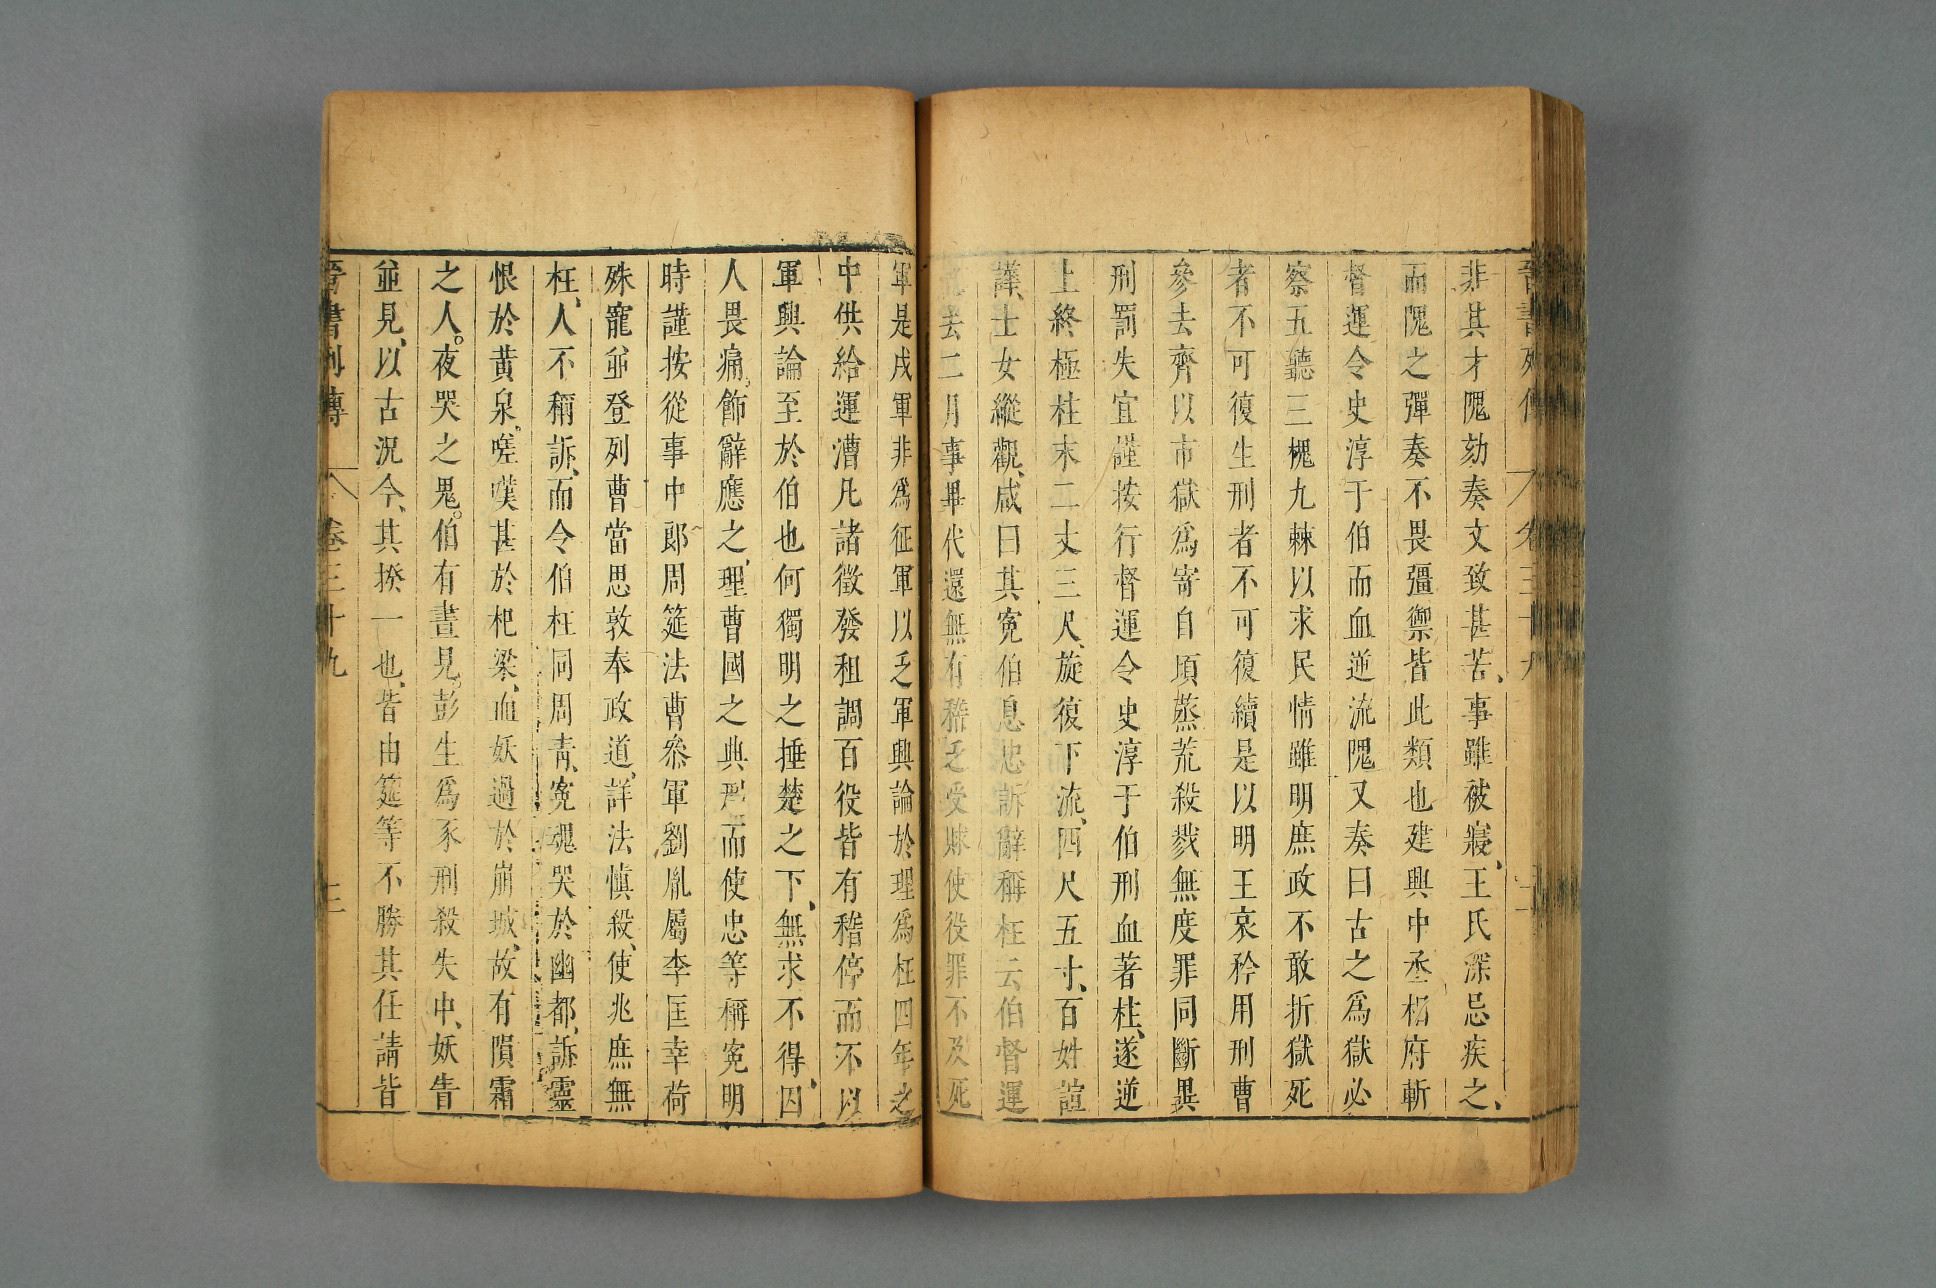 晉書列傳 卷三十九 二
非其才隗劾奏文致甚苦、事雖被寢、王氏深忌疾之、
而隗之彈奏不畏彊禦皆此類也建興中丞相府斬
督運令史淳于伯而血逆流隗又奏曰古之爲獄必
察五聽三槐九棘以求民情雖明庶政不敢折獄死
者不可復生刑者不可復續是以明王哀矜用刑曹
參去齊以市獄爲寄自頃蒸荒殺戮無度罪同斷異
刑罰失宜謹按行督運令史淳于伯刑血著柱、遂逆
上終極柱末二丈三尺、旋復下流、四尺五寸、百姓諠
譁、士女縱觀、咸曰其寃伯息忠訴辭稱枉云伯督運
訖去二月事畢代還無有稽乏受賕使役罪不及死
軍是戍軍非爲征軍以乏軍興論於理爲枉四年之
中供給運漕凡諸徵發租調百役皆有稽停而不以
軍興論至於伯也何獨明之捶楚之下、無求不得、囚
人畏痛。飾辭應之、理曹國之典刑而使忠等稱寃明
時謹按從事中郎周筵法曹叅軍劉胤屬李匡幸荷
殊寵並登列曹當思敦奉政道、詳法慎殺、使兆庶無
枉、人不稱訴、而令伯枉同周青、寃魂哭於幽都、訴靈
恨於黃泉、嗟嘆甚於杞梁、血妖過於崩城、故有隕霜
之人。夜哭之鬼。伯有晝見。彭生爲豕刑殺失中、妖眚
並見、以古況今、其揆一也、皆由筵等不勝其任請皆
晉書列傳 卷三十九 三